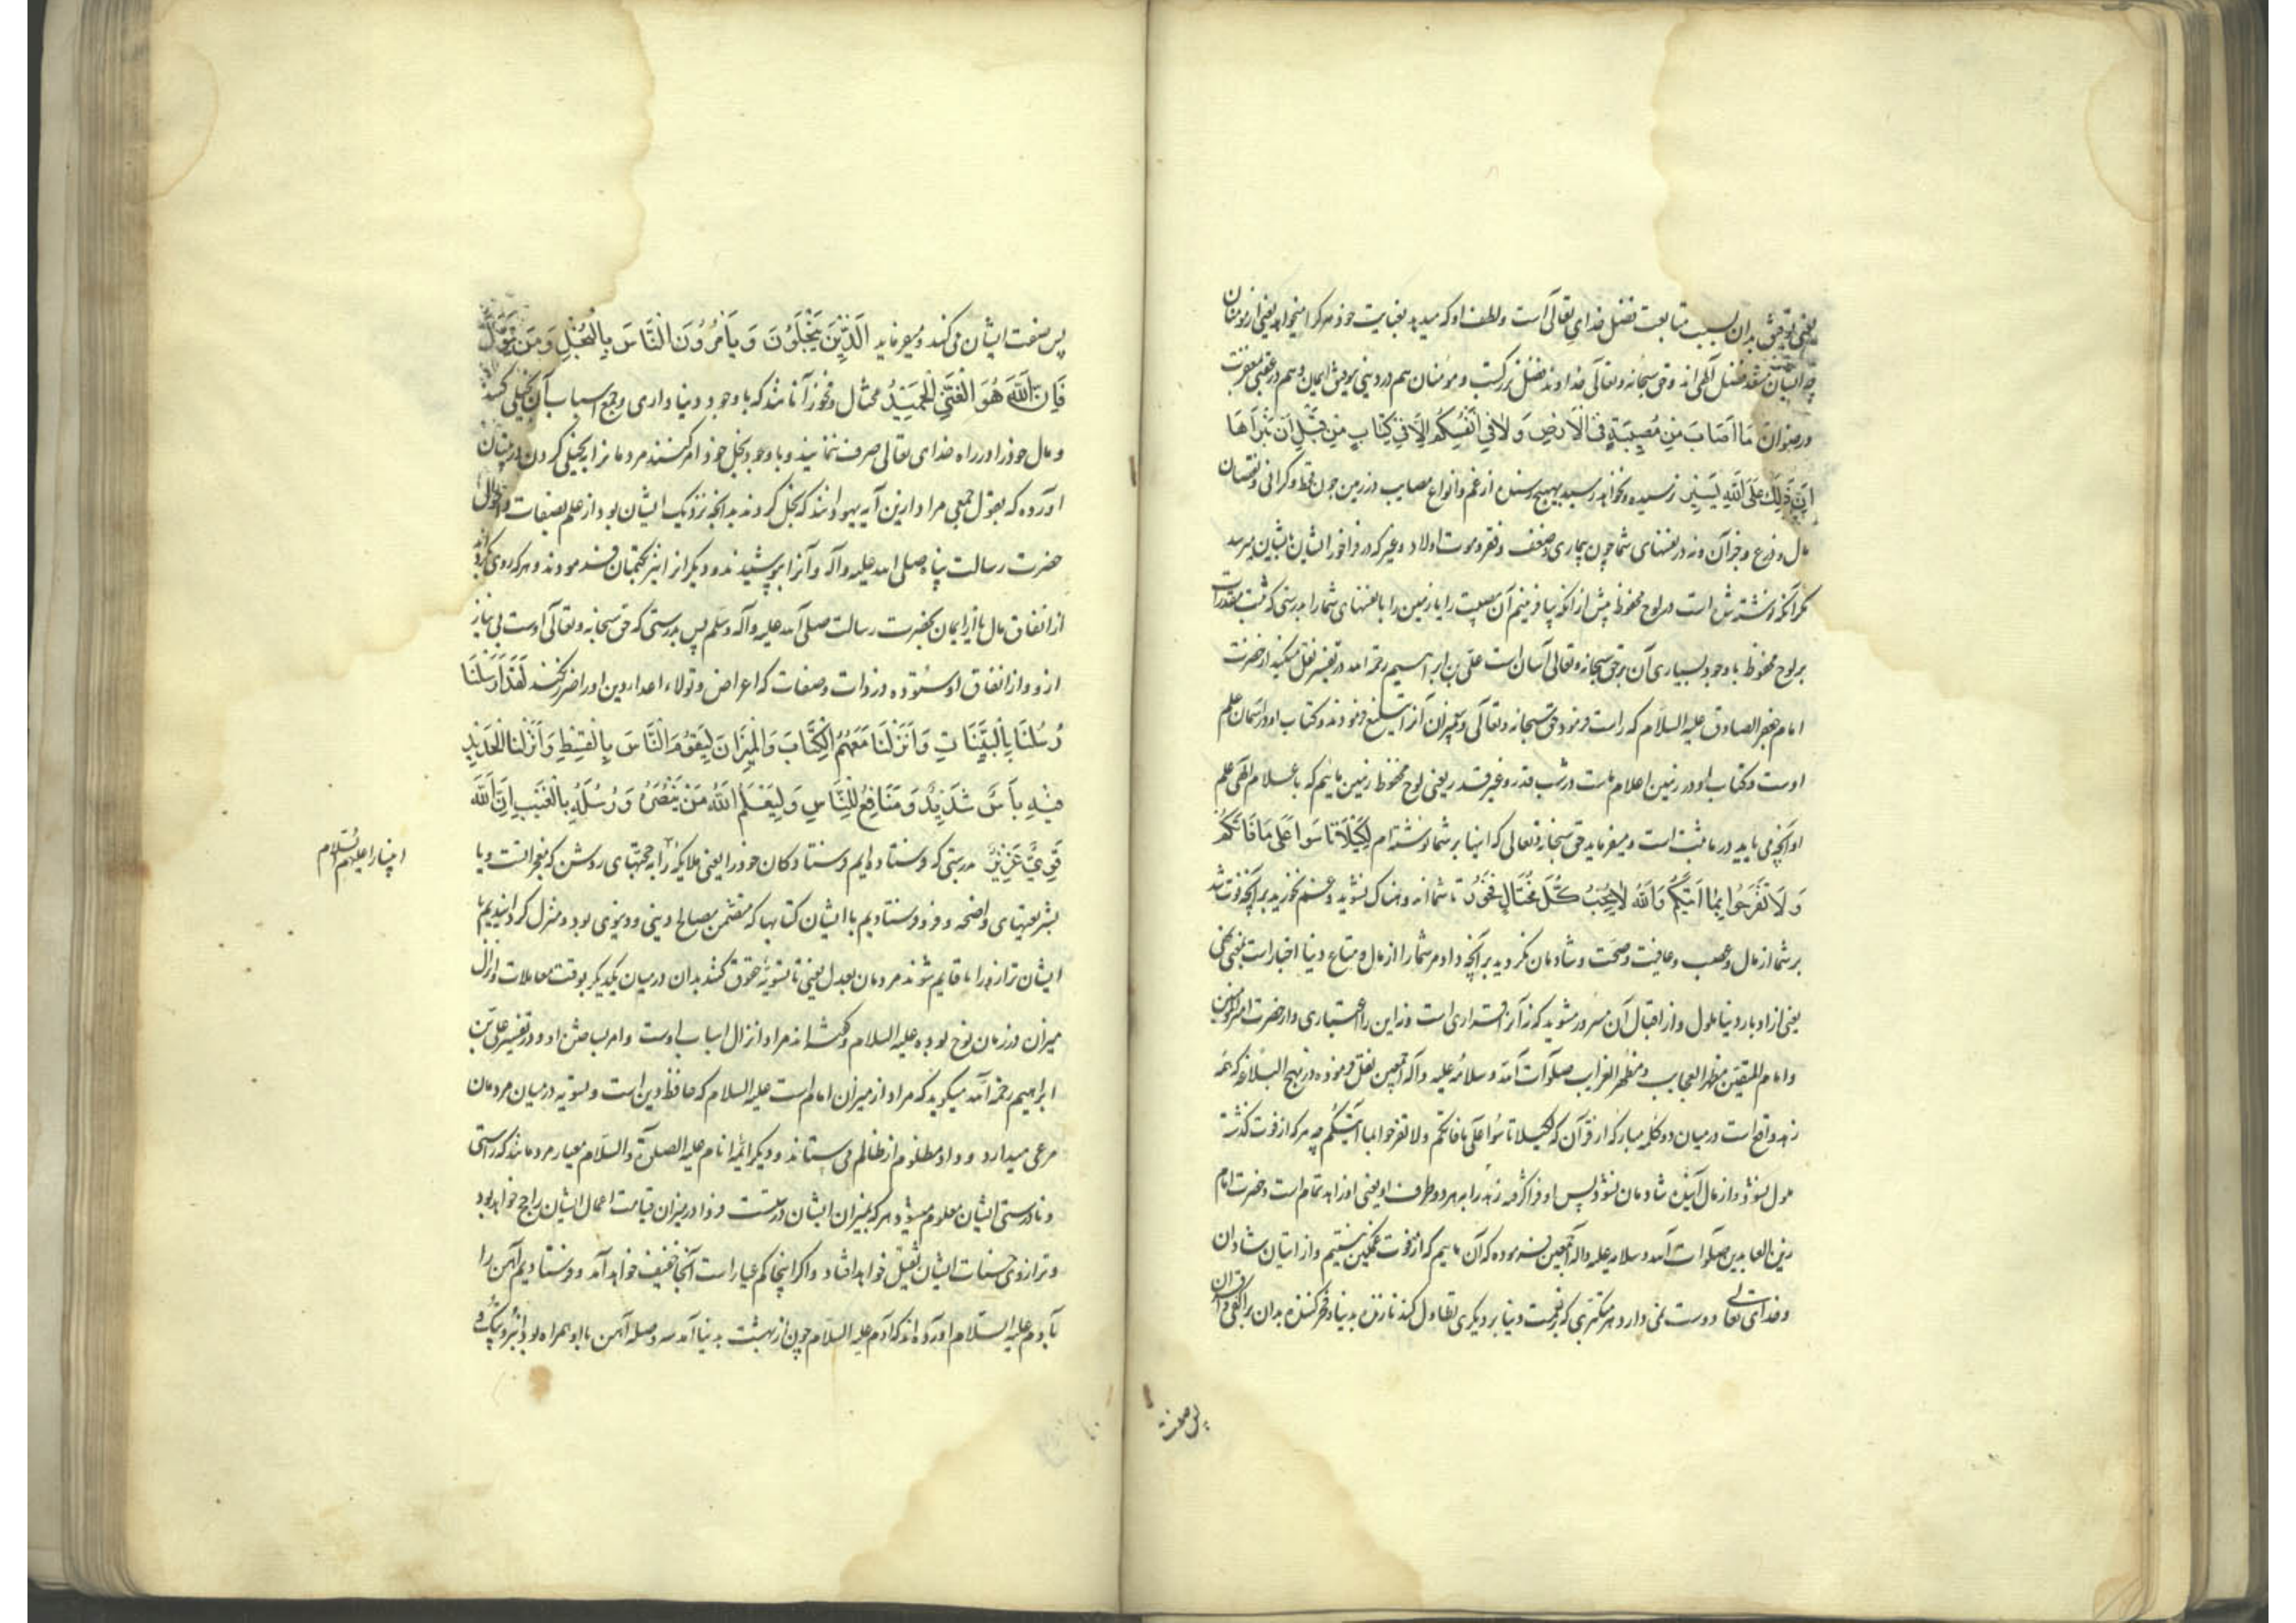 یعنی توفیق بدان بسبب متابعت فضل خدای تعالی است و لطف او که میدهد بعنایت خود هر کرا میخواهد یعنی از مومنان
چه ایشان فضل الهی اند و حق سبحانه و تعالی خداوند فضل بزرکست و مومنان هم در دنیی بتوفیق ایمان و هم در عقبی بمغفرت
و رضوان مَا اَصَابَ مِنْ مُصِیبَةٍ فِی الْاَرْضِ وَلَا فِی اَنْفُسِکُمْ اِلَّا فِی کِتَابٍ مِنْ قَبْلِ اَنْ نَبْرَاَهَا
اِنَّ ذٰلِکَ عَلَی اللّٰهِ یَسِیرٌ نرسیده و نخواهد رسید بهیچ رسنده از غم و انواع مصایب در زمین چون قحط و کرانی و نقصان
مال و زرع و جز آن و نه در نفسهای شما چون بیماری و ضعف و فقر و موت اولاد و غیر که در فراخور ایشان بایشان میرسد
مکر آنکه نوشته شده است در لوح محفوظ پیش از آنکه بیافرینیم آن مصیبت را یا زمین را یا نفسهای شما را بدرستی که ثبت مقدرات
بر لوح محفوظ با وجود بسیاری آن بر حق سبحانه و تعالی آسان است علی بن ابراهیم رحمه الله در تفسیر نقل میکند از حضرت
امام جعفر الصادق علیه السلام که راست فرمود حق سبحانه و تعالی و پیغمبران آنرا تبلیغ فرمودند و کتاب او در آسمان علم
اوست و کتاب او در زمین اعلام ماست در شب قدر و غیر قدر یعنی لوح محفوظ زمین ماییم که باعلام الهی علم
او آنچه می باید در ما ثبت است و میفرماید حق سبحانه و تعالی که اینها بر شما نوشته ام لِکَیْلَا تَاْسَوْا عَلَی مَا فَاتَکُمْ
وَ لَا تَفْرَحُوا بِمَا اٰتٰیکُمْ وَاللّٰهُ لَا یُحِبُّ کُلَّ مُخْتَالٍ فَخُورٍ تا شما اندوهناک نشوید و غم نخورید بر آنچه فوت شد
بر شما از مال و عافیت و صحت و شادمان نکردید بر آنچه داد مر شما را از مال و متاع دنیا اخبار است بمعنی نهی
یعنی از ادبار دنیا ملول و از اقبال آن مسرور مشوید که نه آنرا قراری است و نه این را اعتباری و از حضرت امیر المومنین
و امام المتقین مظهر العجایب و مظهر الغرایب صلوات الله و سلامه علیه و آله اجمعین نقل فرموده در نهج البلاغه که همه
زهد واقع است در میان دو کلمه مبارکه از قرآن که لکیلا تاسوا علی ما فاتکم و لا تفرحوا بما آتیکم چه هر که از فوت کذشته
ملول نشود و از مال آینده شادمان نشود پس او فرا کرفته زهد را بهر دو طرف او یعنی او زاهد تمام است و حضرت امام
زین العابدین صلوات الله و سلامه علیه و آله اجمعین فرموده که آن ماییم که از فوت غمکین نیستیم و از اتیان شادان
و خدای تعالی دوست نمی دارد هر متکبری که بنعمت دنیا بر دیکری تطاول کند نازنده بدنیا و فخر کننده بدان بر اکفا و اقران
پس صفت
پس صفت ایشان می کند و میفرماید اَلَّذِینَ یَبْخَلُونَ وَ یَاْمُرُونَ النَّاسَ بِالْبُخْلِ وَ مَنْ یَتَوَلَّ
فَاِنَّ اللّٰهَ هُوَ الْغَنِیُّ الْحَمِیدُ مختال و فخور آنانند که با وجود دنیا داری و جمع اسباب آن بخیلی کنند
و مال خود را در راه خدای تعالی صرف ننمایند و با وجود بخل خود امر کنند مردمانرا ببخیلی کردن
آورده که بقول جمعی مراد ازین آیه یهودانند که بخل کردند بدآنچه نزدیک ایشان بود از علم بصفات و احوال
حضرت رسالت پناه صلی الله علیه و آله و آنرا بپوشیدند و دیکرانرا نیز بکتمان فرمودند و هر که روی بکرداند
از انفاق مال یا از ایمان بحضرت رسالت صلی الله علیه و آله و سلم پس بدرستی که حق سبحانه و تعالی اوست بی نیاز
ازو و از انفاق او ستوده در ذات و صفات که اعراض و تولاء اعداء دین او را ضرر نکند لَقَدْ اَرْسَلْنَا
رُسُلَنَا بِالْبَیِّنَاتِ وَ اَنْزَلْنَا مَعَهُمُ الْکِتَابَ وَ الْمِیزَانَ لِیَقُومَ النَّاسُ بِالْقِسْطِ وَ اَنْزَلْنَا الْحَدِیدَ
فِیهِ بَاْسٌ شَدِیدٌ وَ مَنَافِعُ لِلنَّاسِ وَ لِیَعْلَمَ اللّٰهُ مَنْ یَنْصُرُهُ وَ رُسُلَهُ بِالْغَیْبِ اِنَّ اللّٰهَ
قَوِیٌّ عَزِیزٌ بدرستی که فرستاده ایم فرستادکان خود را یعنی ملایکه را به حجتهای روشن که معجزاتست و یا
انبیا را علیهم السلام
بشریعتهای واضحه و فرو فرستادیم با ایشان کتابها که متضمن مصالح دینی و دنیوی بود و منزل کردانیدیم با
ایشان ترازو را تا قایم شوند مردمان بعدل یعنی تا تسویه حقوق کنند بدان در میان یکدیکر بوقت معاملات و انزال
میزان در زمان نوح بوده علیه السلام و کفته اند مراد انزال اسباب اوست و امر بساختن او و در تفسیر علی بن
ابراهیم رحمه الله میکوید که مراد از میزان امام است علیه السلام که حافظ دین است و تسویه در میان مردمان
مرعی میدارد و داد مظلوم از ظالم می ستاند و دیکر ائمه انام علیه الصلوة و السلام معیار مردمانند که راستی
و نادرستی ایشان معلوم میشود هر که بمیزان ایشان درستست فردا در میزان قیامت اعمال ایشان راجح خواهد بود
و ترازوی حسنات ایشان ثقیل خواهد افتاد و اکر اینجا کم عیار است آنجا خفیف خواهد آمد و فرستادیم آهن را
بآدم علیه السلام آورده اند که آدم علیه السلام چون از بهشت بدنیا آمد سه وصله آهن با او همراه بود